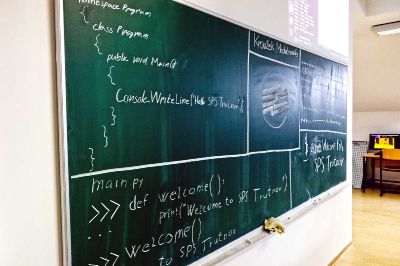 namespace Program
{
class Program
{
public void Main()
{
Console.WriteLine("Hello SPS Trutnov");
}
}
}
main.py
>>> def welcome():
print("Welcome to SPS Trutnov")
...
>>> welcome()
to SPS Trutnov
Kroužek
SPS Trutnov